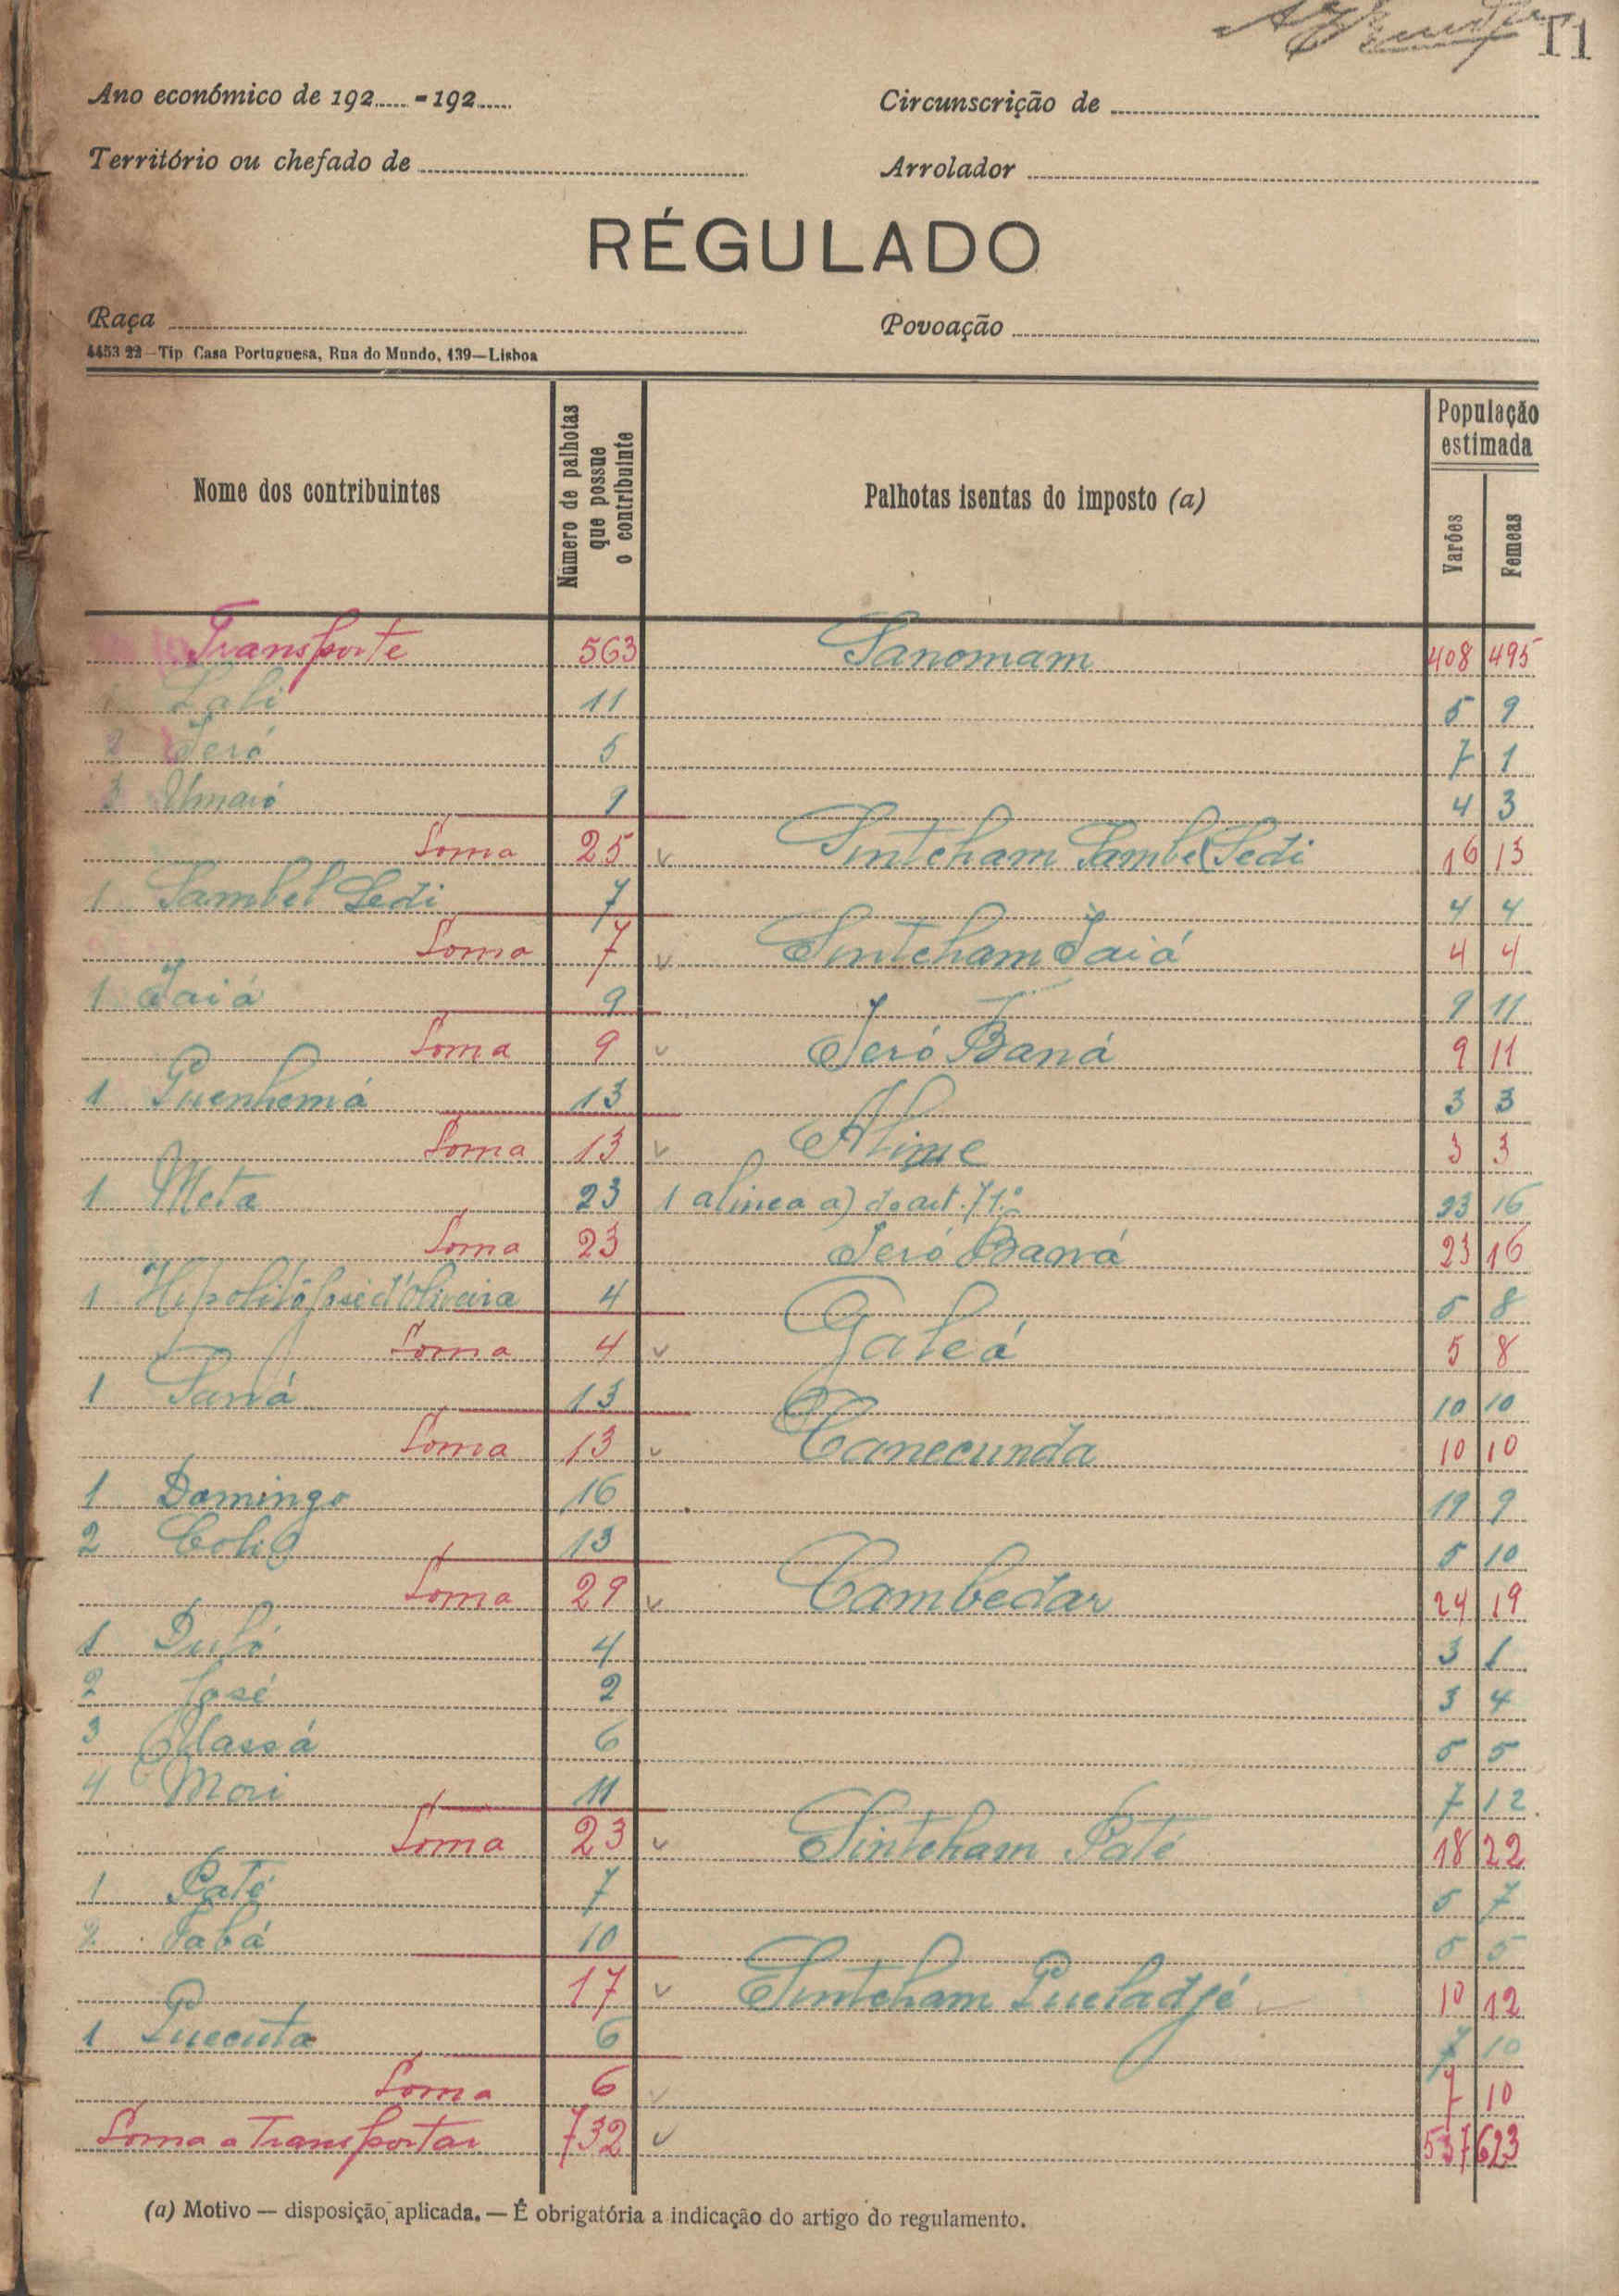 11
Ano económico de 192...... - 192...... Circunscrição de
Território ou chefado de Arrolador
RÉGULADO
Raça Povoação
4453 22—Tip. Casa Portuguesa, Rua do Mundo, 139—Lisboa
Nome dos contribuintes Número de palhotas que possue o contribuinte Palhotas isentas do imposto (a) População estimada Varões Femeas
Transporte 563 Sanomam 408 495
1 Lali 11 5 9
2 Seró 5 7 1
3 Umaró 9 4 3
Soma 25 Sintcham Sambel Sedi 16 13
1 Sambel Sedi 7 4 4
Soma 7 Sintcham Jaiá 4 4
1 Jaiá 9 9 11
Soma 9 Jeró Baná 9 11
1 Quenhemá 13 3 3
Soma 13 Alime 3 3
1 Meta 23 1 alinea a) do art. 71.º 23 16
Soma 23 Jeró Baná 23 16
1 Hipolito José d'Oliveira 4 5 8
Soma 4 Galeá 5 8
1 Saná 13 10 10
Soma 13 Canecunda 10 10
1 Domingo 16 19 9
2 13 5 10
Soma 29 Cambedar 24 19
1 4 3 1
2 José 2 3 4
3 6 5 5
4 Mori 11 7 12
Soma 23 Sintcham Paté 18 22
1 Paté 7 5 7
2 10 5 5
17 Sintcham Queladjé 10 12
1 Quecuta 6 7 10
Soma 6 7 10
Soma a Transportar 732 537 623
(a) Motivo — disposição aplicada. — É obrigatória a indicação do artigo do regulamento.